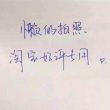 懒的拍照.
淘宝好评专用